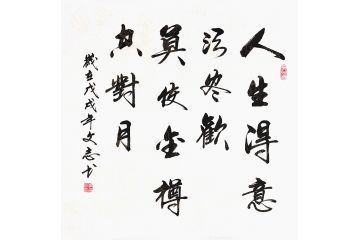 人生得意
须尽歡
莫使金樽
空對月
歲在戊戌年文志书